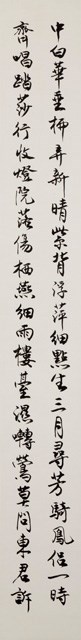 中白華垂柳弄新晴紫背浮萍細點生三月尋芳騎鳳侶一時
齊唱踏莎行收燈院落傷栖燕細雨樓臺濕囀鶯莫問東君訴